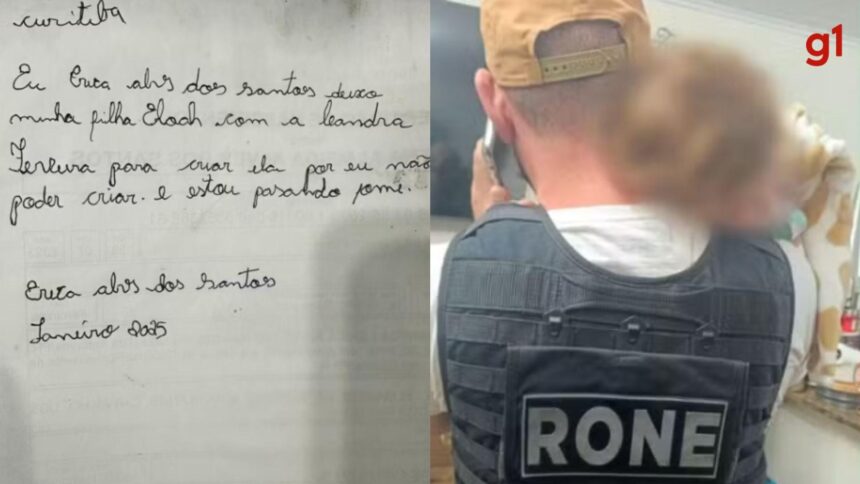 curitiba
Eu Erica alvs dos santos deixo
minha filha Eloah com a leandra
Ferreira para criar ela por eu não
poder criar. e estou pasando fome.
Erica alvs dos santos
Janeiro 2025
g1
RONE